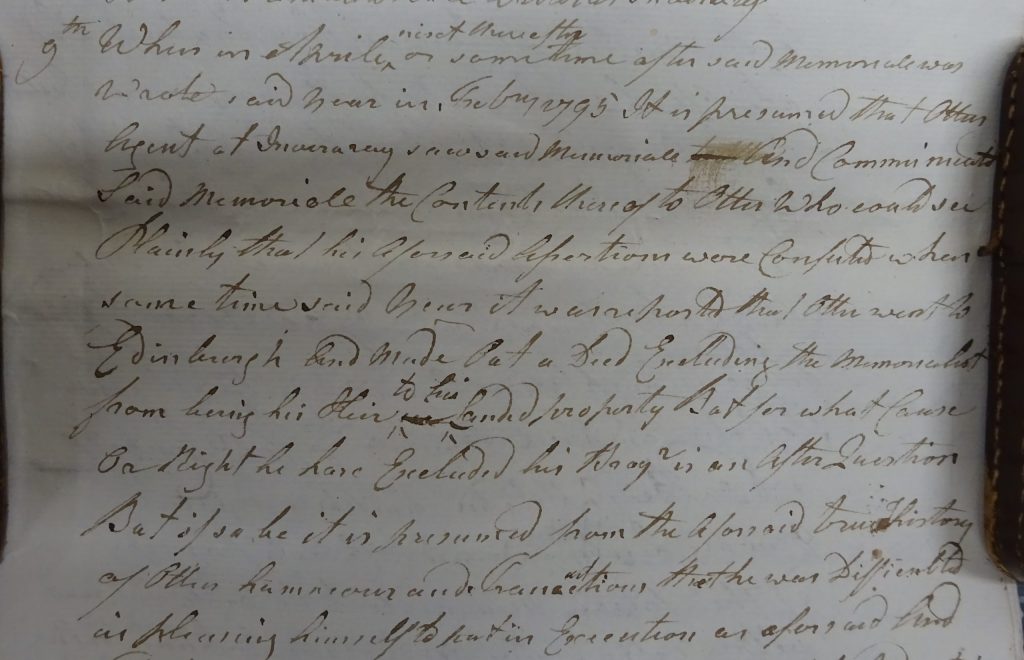 9th When in Aprile nixt thereafter or some time after said Memoriale was
wrote said year in Febry 1795 It is presumed that Otter
Agent at Inveraray saw said Memoriale And Communicate
Said Memoriale the Contents thereof to Otter Who could see
Plainly that his Aforsaid Assertions were Confuted when
same time said year it was reported that Otter went to
Edinburgh And made Out a Deed Excluding the Memorialist
from being his Heir to his Landed property But for what Cause
Or Right he have Excluded his is an After Question
But if so be it is presumed from the Aforsaid true History
of Otter and Transactions that he was
in pleasing himself to put in Execution as aforsaid And